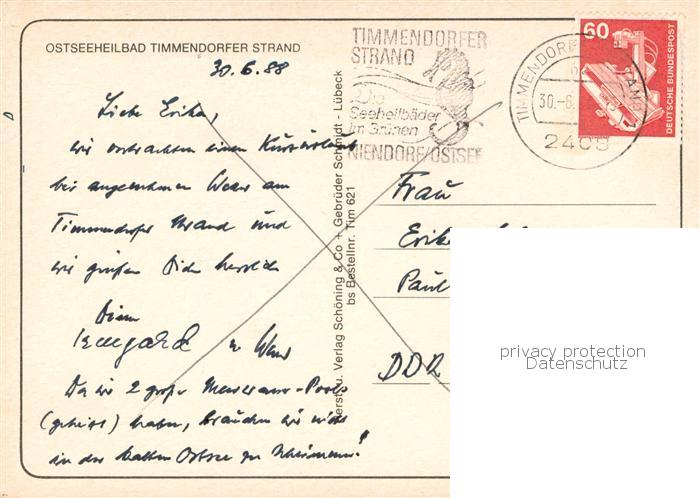 OSTSEEHEILBAD TIMMENDORFER STRAND
30.6.88
Liebe Erika,
wir verbrachten einen Kurzurlaub
bei angenehmem Wetter am
Timmendorfer Strand und
wir grüßen Dich herzlich
Deine
Irmgard u
Da wir 2 große Meerwasser-Pools
(geheizt) haben, brauchen wir nicht
in der kalten Ostsee zu schwimmen!
Verlag Schöning & Co + Gebrüder Schmidt - Lübeck
bs Bestellnr. Tim 621
TIMMENDORFER
STRAND
Die
Seeheilbäder
im Grünen
NIENDORF/OSTSEE
TIMMENDORFER STRAND
30.-6.
2408
60
DEUTSCHE BUNDESPOST
Frau
Erika
Paul
DDR
privacy protection
Datenschutz